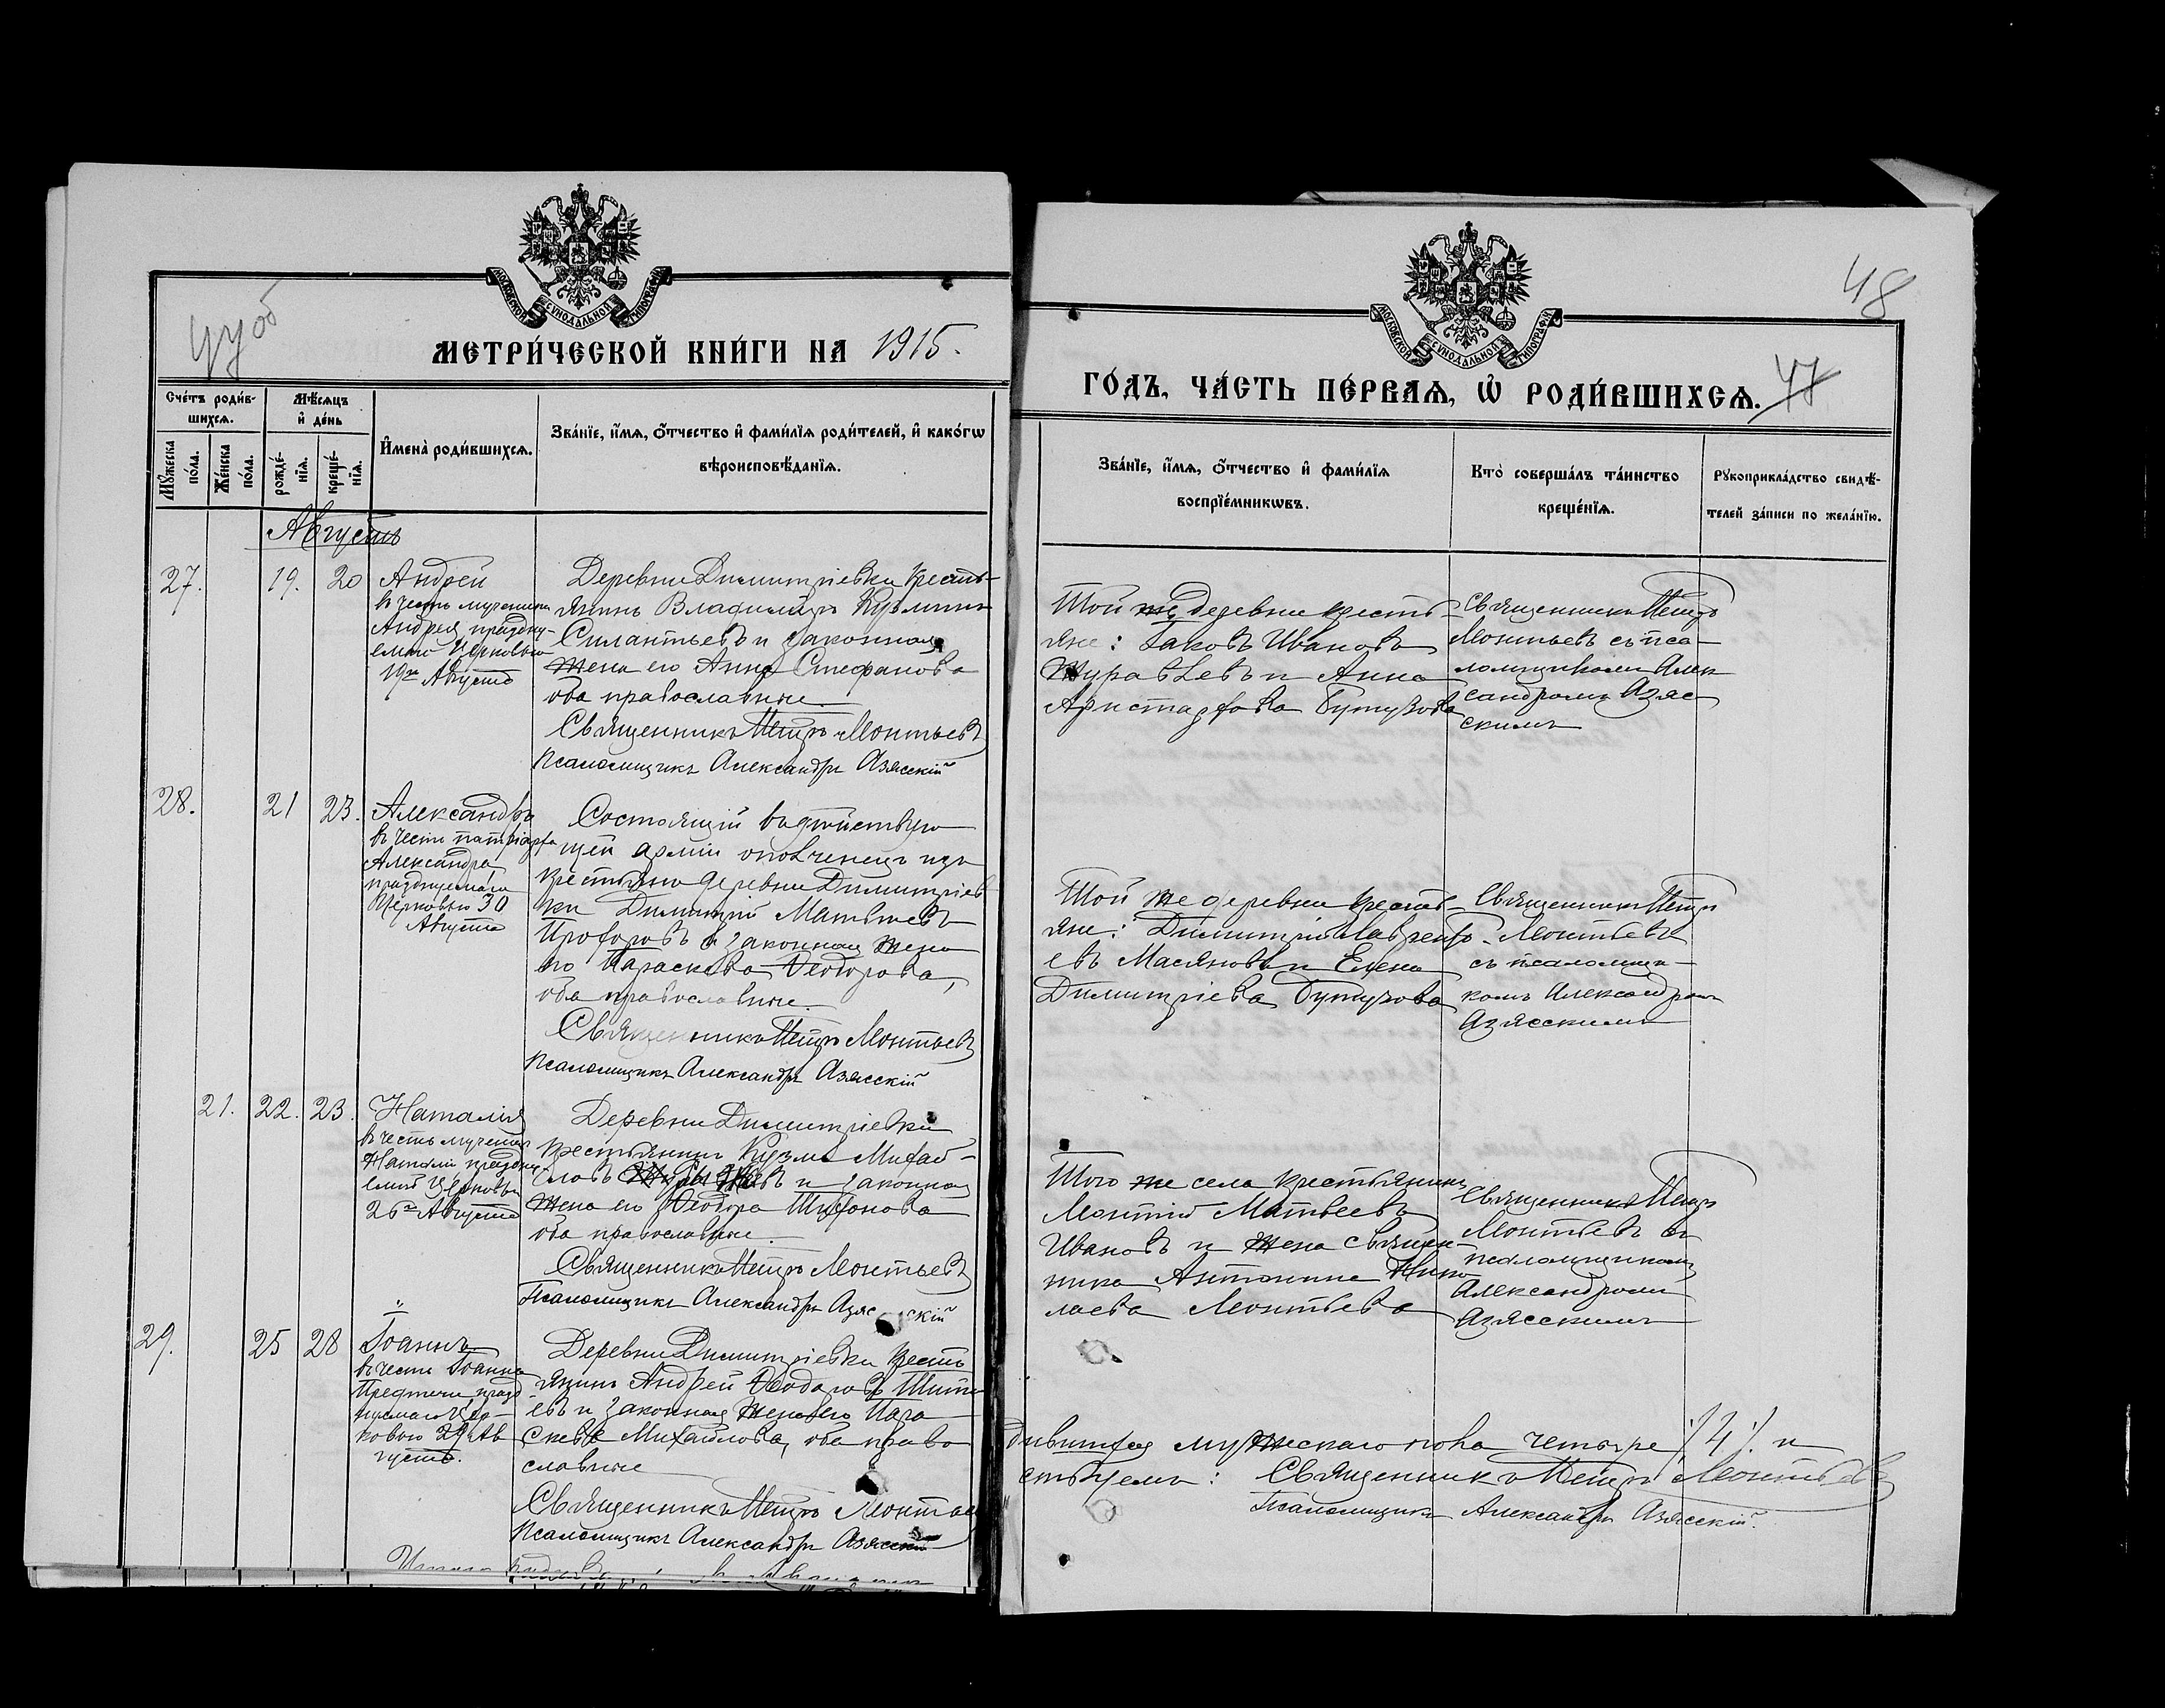 МОСКОВСКОЙ СѴНОДАЛЬНОЙ ТИПОГРАФІИ
47об
МЕТРИ́ЧЕСКОЙ КНИ́ГИ НА 1915.
Сче́тъ роди́в-
шихсѧ.
Мѣ́сѧцъ
и҆ де́нь
Мꙋ́жеска
по́ла.
Же́нска
по́ла.
рожде́-
нїѧ.
креще́-
нїѧ.
И҆мена̀ роди́вшихсѧ.
Зва́нїе, и҆́мѧ, ѻ҆́тчество и҆ фами́лїѧ роди́телей, и҆ како́гѡ
вѣроисповѣ́данїѧ.
Августъ
27. 19. 20
Андрей
въ честь мученика
Андрея праздну-
емаго Церковью
19го Августа
Деревни Димитріевки кресть-
янинъ Владиміръ Кузминъ
Силантьевъ и законная
жена его Анна Стефанова
оба православные.
Священникъ Петръ Леонтьевъ
Псаломщикъ Александръ Азясскій
28. 21 23.
Александръ
въ честь патріарха
Александра,
празднуемаго
Церковью 30
Августа
Состоящій въ дѣйствую
щей арміи ополченецъ изъ
крестьянъ деревни Димитріев
ки Димитрій Матвѣевъ
Прохоровъ и законная жена
его Параскева Ѳеодорова,
оба православные.
Священникъ Петръ Леонтьевъ
Псаломщикъ Александръ Азясскій
21. 22. 23.
Наталія
въ честь мученицы
Наталіи праздну
емой Церковью
26го Августа
Деревни Димитріевки
крестьянинъ Кузма Михай-
ловъ и законная
жена его Ѳеодора Тихонова
оба православные.
Священникъ Петръ Леонтьевъ
Псаломщикъ Александръ Азясскій
29. 25 28
Іоаннъ
въ честь Іоанна
Предтечи празд
нуемаго Цер-
ковью 29 Ав
густа.
Деревни Димитріевки кресть
янинъ Андрей Ѳеодоровъ
евъ и законная жена его Пара
скева Михайлова, оба право
славные
Священникъ Петръ Леонтьев
Псаломщикъ Александръ Азясскій
МОСКОВСКОЙ СѴНОДАЛЬНОЙ ТИПОГРАФІИ
48
ГО́ДЪ, ЧА́СТЬ ПЕ́РВАѦ, Ѡ҆ РОДИ́ВШИХСѦ. 47
Зва́нїе, и҆́мѧ, ѻ҆́тчество и҆ фами́лїѧ
воспрїе́мникѡвъ.
Кто̀ соверша́лъ та́инство
креще́нїѧ.
Рꙋкоприкла́дство свидѣ́-
телей за́писи по жела́нїю.
Той же деревни кресть-
яне: Іаковъ Ивановъ
Журавлевъ и Анна
Аристархова Бутузова
Священникъ Петръ
Леонтьевъ съ пса-
ломщикомъ Алек
сандромъ Азяс
скимъ
Той же деревни кресть-
яне: Димитрій Лаврентьевъ
евъ Масяновъ и Елена
Димитріева Бутузова
Священникъ Петръ
Леонтьевъ
съ псаломщи-
комъ Александромъ
Азясскимъ
Того же села крестьянинъ
Леонтій Матвеевъ
Ивановъ и жена священ-
ника Антонина Нико
лаева Леонтьева
Священникъ Петръ
Леонтьевъ съ
псаломщикомъ
Александромъ
Азясскимъ
мужескаго пола четыре /4/. и
Священникъ Петръ Леонтьевъ
Псаломщикъ Александръ Азясскій.